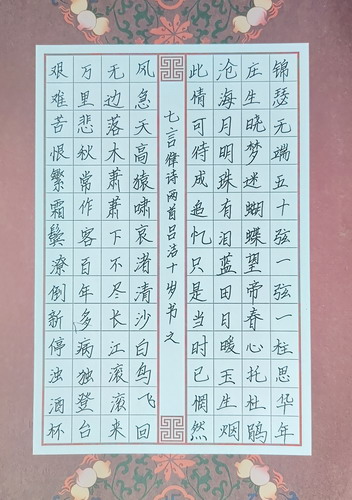 锦瑟无端五十弦一弦一柱思华年
庄生晓梦迷蝴蝶望帝春心托杜鹃
沧海月明珠有泪蓝田日暖玉生烟
此情可待成追忆只是当时已惘然
七言律诗两首吕洁十岁书文
风急天高猿啸哀渚清沙白鸟飞回
无边落木萧萧下不尽长江滚滚来
万里悲秋常作客百年多病独登台
艰难苦恨繁霜鬓潦倒新停浊酒杯